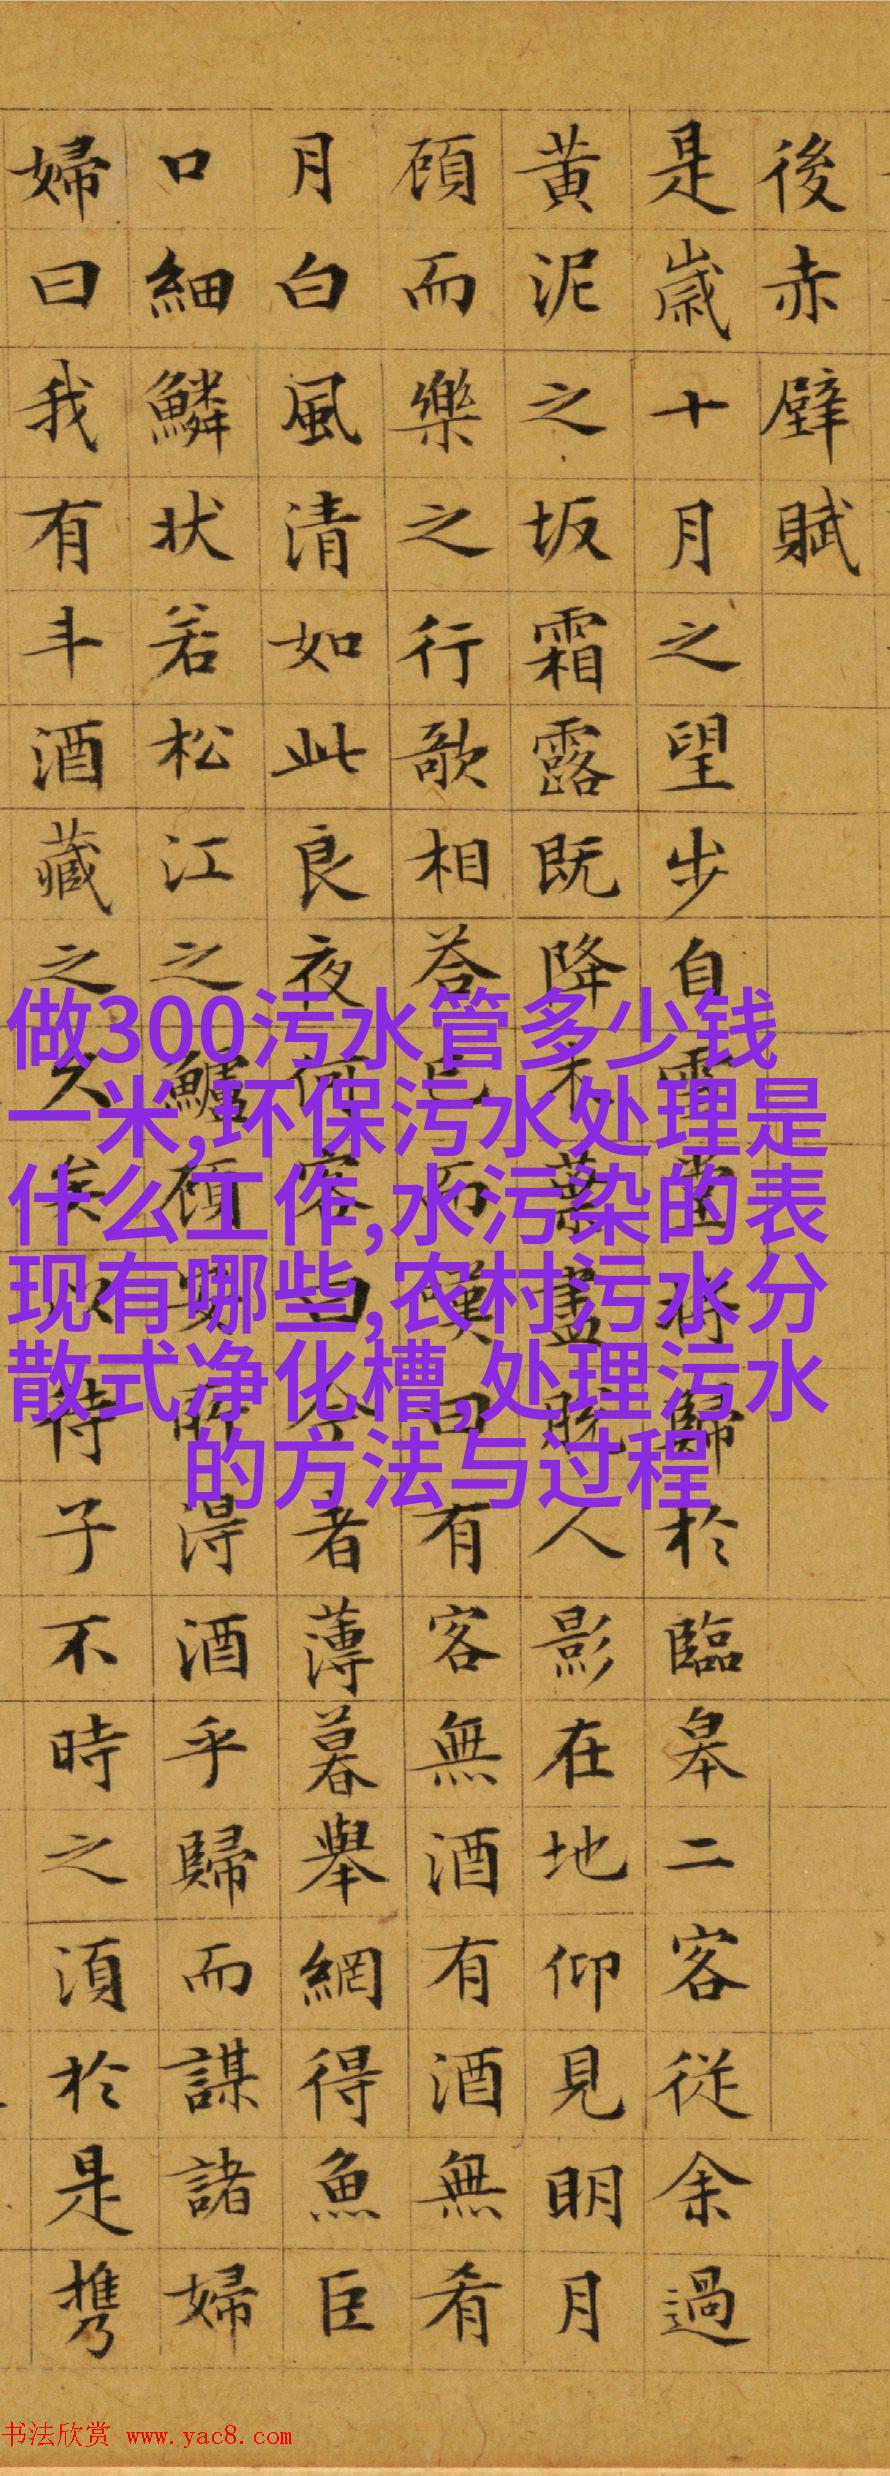 後赤壁賦
是歲十月之望步自雪堂將歸於臨皋二客従余過
黄泥之坂霜露既降木葉盡脫人影在地仰見明月
頋而樂之行歌相荅已而嘆曰有客無酒有酒無肴
月白風清如此良夜何客曰今者薄暮舉網得魚巨
口細鱗状若松江之鱸頋安所得酒乎歸而謀諸婦
婦曰我有斗酒藏之久矣以待子不時之湏於是携
做300污水管多少钱
一米,环保污水处理是
什么工作,水污染的表
现有哪些,农村污水分
散式净化槽,处理污水
的方法与过程
书法欣赏 www.yac8.com